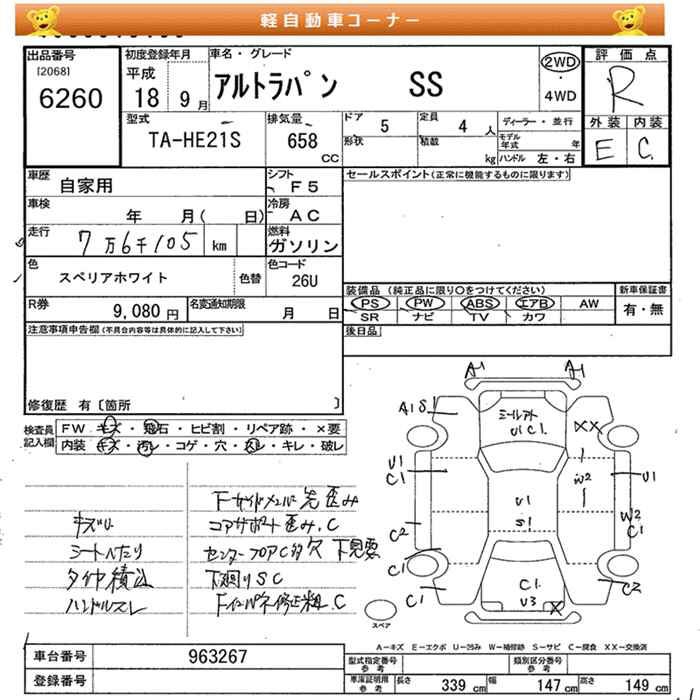 軽自動車コーナー
出品番号 初度登録年月 車名・グレード 評価点
[2068] 平成 2WD
6260 18 9月 アルトラパン SS 4WD R
型式 排気量 ドア 5 定員 4人 ディーラー・並行 外装 内装
TA-HE21S 658 CC 形状 積載 kg モデル年式 年 E C
ハンドル 左・右
車歴 自家用 シフト F5 セールスポイント(正常に機能するものに限ります)
車検 年 月( 日) 冷房 AC
走行 7万6千105 km 燃料 ガソリン
色 スペリアホワイト 色替 色コード 26U
装備品 (純正品に限り○をつけてください) 新車保証書
R券 9,080円 名変通知期限 月 日 PS PW ABS エアB AW 有・無
SR ナビ TV カワ
注意事項申告欄(不具合内容等は具体的に記入して下さい) 後日品
修復歴 有〔箇所 〕
検査員記入欄 FW キズ・飛石・ヒビ割・リペア跡・×要
内装 キズ・汚れ・コゲ・穴・スレ・キレ・破レ
Fサイドメンバー先歪み
キズU コアサポート歪み.C
シートへたり センターフロアC的穴 下見要
タイヤ積込 下廻りSC
ハンドルスレ Fインパネ修正粗.C
A1 A1
A1S ミールアト U1C1. XX
U1 C1 W2 U1
U1 S1
C2 W2 C1
C1
C1 C1. U3 X C2
スペア
A-キズ E-エクボ U-凹み W-補修跡 S-サビ C-腐食 XX-交換済
車台番号 963267 型式指定番号 参考 類別区分番号 参考
登録番号 車庫証明用 参考 長さ 339 cm 幅 147 cm 高さ 149 cm